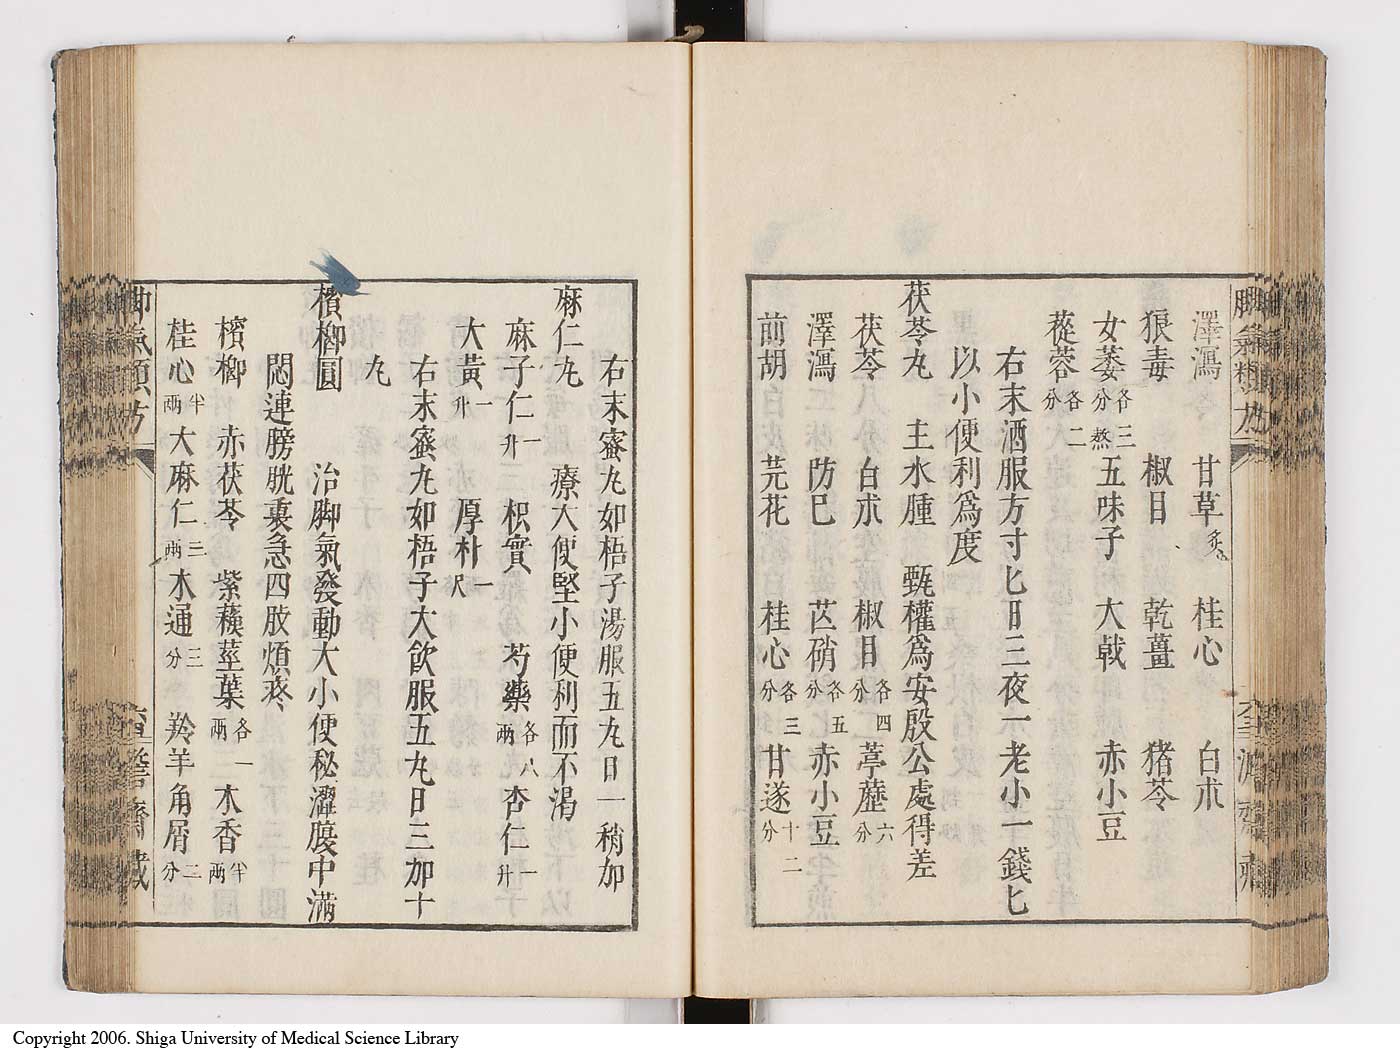 澤瀉 甘草炙 桂心 白朮
狼毒 椒目 乾薑 猪苓
女萎各三分熬 五味子 大戟 赤小豆
蓯蓉各二分
右末酒服方寸匕日三夜一老小一錢匕
以小便利爲度
茯苓丸 主水腫 甄權爲安殷公處得差
茯苓 白朮 椒目各四分 葶藶六分
澤瀉 防巳 芒硝各五分 赤小豆
前胡 芫花 桂心各三分 甘遂十二分
右末蜜丸如梧子湯服五丸日一稍加
麻仁丸 療大便堅小便利而不渴
麻子仁一升 枳實 芍藥各八兩 杏仁一升
大黃一升 厚朴一尺
右末蜜丸如梧子大飲服五丸日三加十
丸
檳榔圓 治脚氣發動大小便秘澀腹中滿
悶連膀胱裏急四肢煩疼
檳榔 赤茯苓 紫蘓莖葉各一兩 木香半兩
桂心半兩 大麻仁三兩 木通三分 羚羊角屑二分
Copyright 2006. Shiga University of Medical Science Library